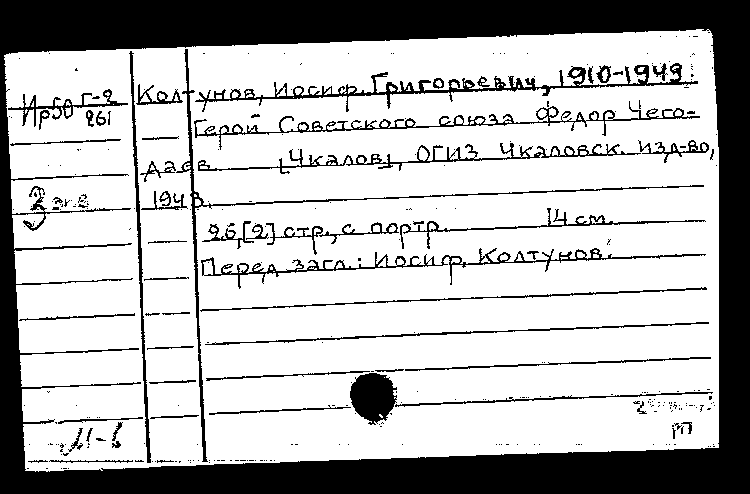 Ир50 Г-2
261
Колтунов, Иосиф Григорьевич, 1910-1949.
Герой Советского союза Федор Чего-
даев. [Чкалов], ОГИЗ Чкаловск. изд-во,
3 экз. 1943.
26,[2] стр., с портр. 14 см.
Перед загл.: Иосиф Колтунов.
М-в
РП